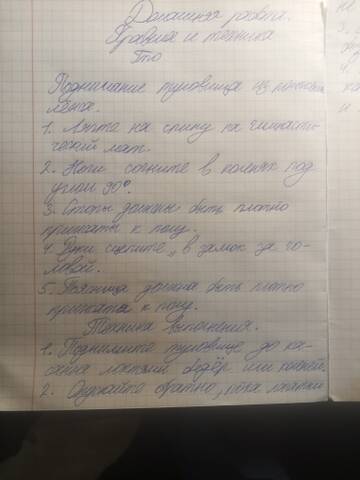 Домашняя работа.
Правила и техника
Гто
Поднимание туловища из положения
лёжа.
1. Лягте на спину на гимнасти-
ческий мат.
2. Ноги согните в коленях под
углом 90°.
3. Стопы должны быть плотно
прижаты к полу.
4. Руки сцепите „в замок за го-
ловой.
5. Поясница должна быть плотно
прижата к полу.
Техника выполнения.
1. Поднимите туловище до ка-
сания локтями бёдер или коленей.
2. Опускайте обратно, пока лопатки